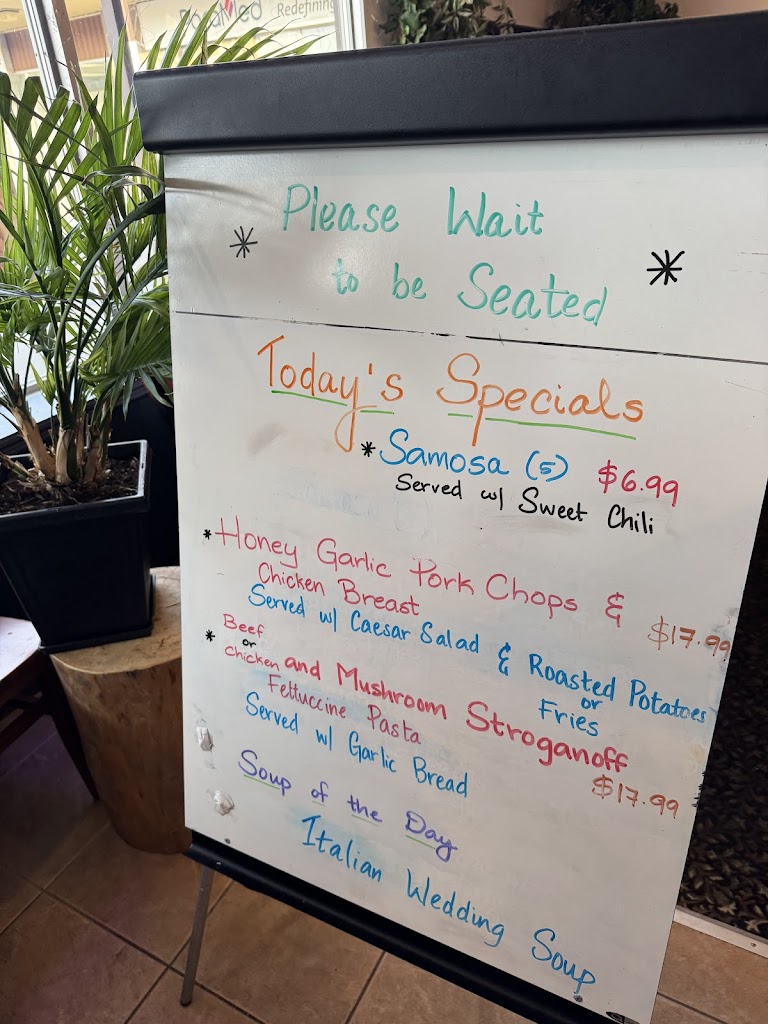 Redefining
Please Wait
* to be Seated *
Today's Specials
* Samosa (5) $6.99
Served w/ Sweet Chili
* Honey Garlic Pork Chops &
Chicken Breast $17.99
Served w/ Caesar Salad & Roasted Potatoes
or
Fries
* Beef
or
Chicken and Mushroom Stroganoff
Fettuccine Pasta $17.99
Served w/ Garlic Bread
Soup of the Day
Italian Wedding Soup